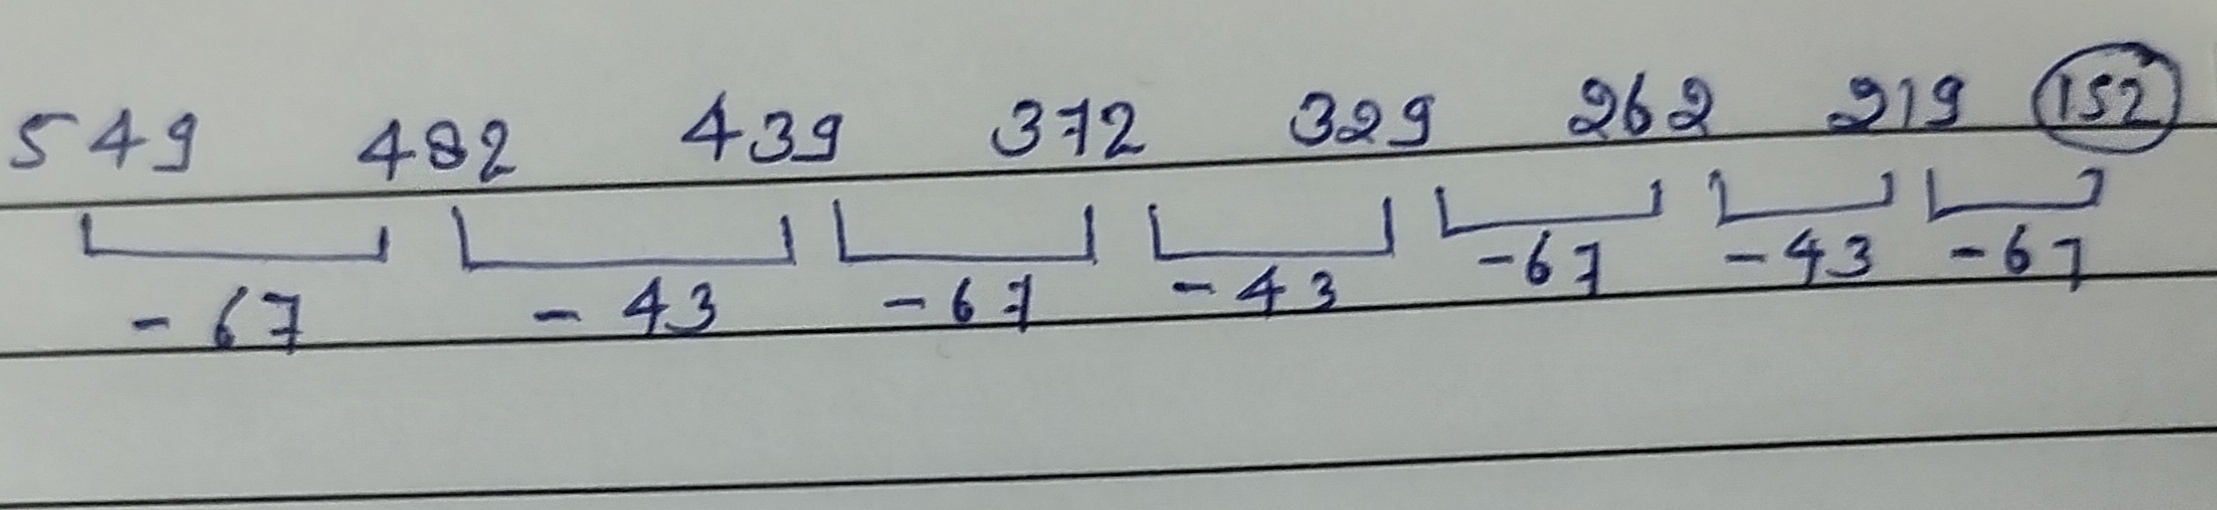 549 482 439 372 329 262 219 152
-67 -43 -67 -43 -67 -43 -67